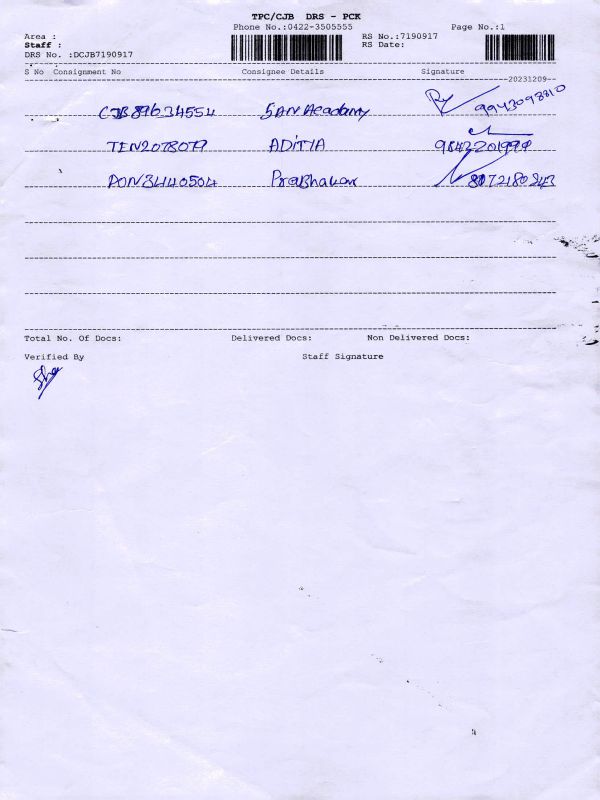 TPC/CJB DRS - PCK
Phone No.:0422-3505555 Page No.:1
Area : RS No.:7190917
Staff : RS Date:
DRS No. :DCJB7190917
S No Consignment No Consignee Details Signature
20231209
CJB89634554 SAN Academy 9943098810
TEN2078079 ADITYA 9842201999
PON34440504 Prabhakar 8072180843
Total No. Of Docs: Delivered Docs: Non Delivered Docs:
Verified By Staff Signature